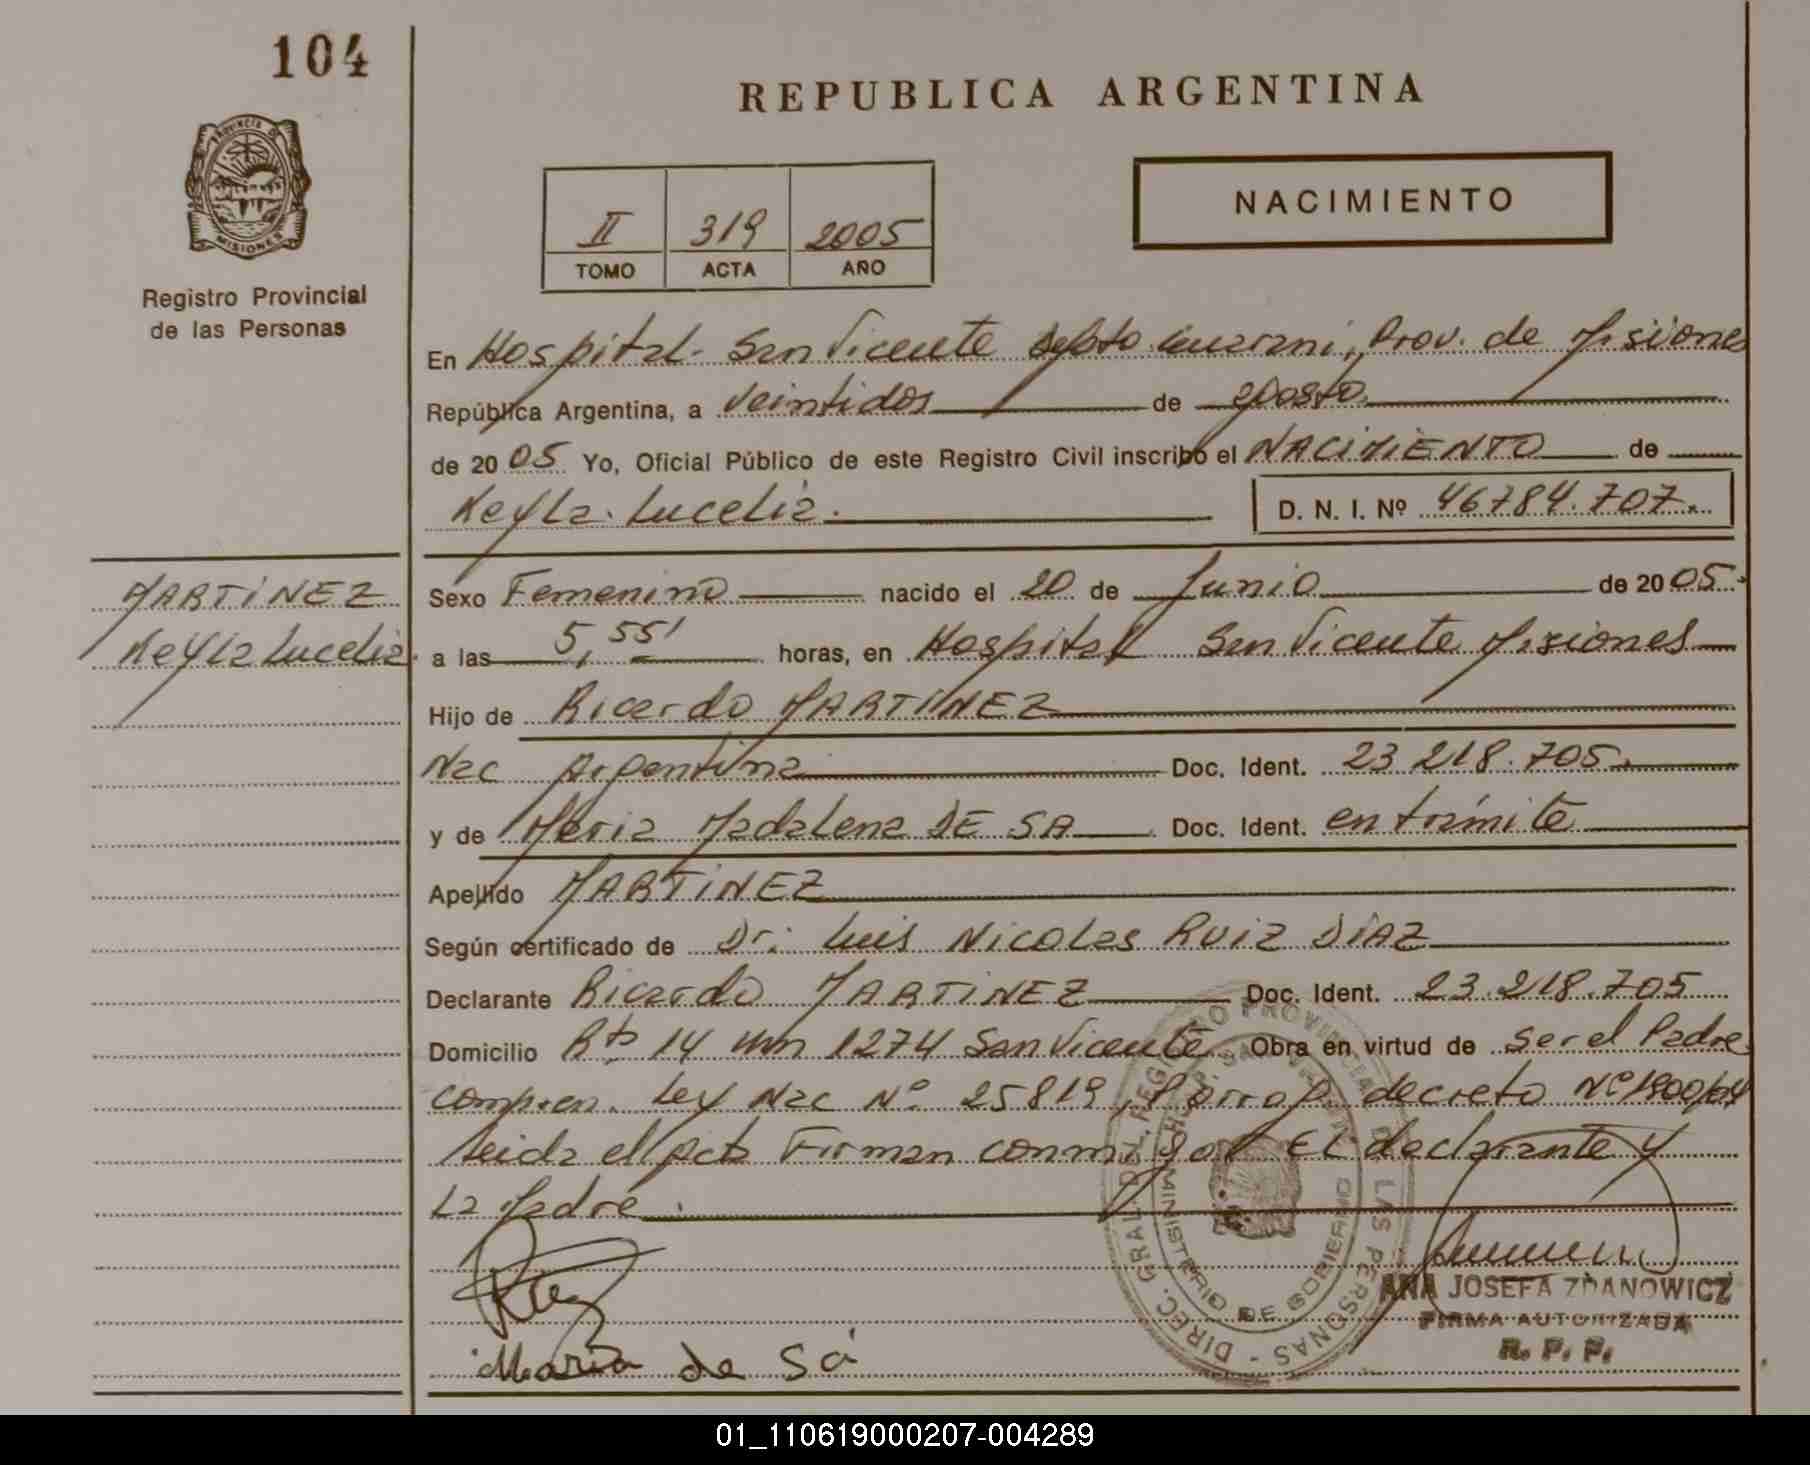 104
REPUBLICA ARGENTINA
PROVINCIA DE
MISIONES
Registro Provincial
de las Personas
NACIMIENTO
II 319 2005
TOMO ACTA AÑO
En Hospital. San Vicente Dpto Guarani, Prov. de Misiones
República Argentina, a Veintidos de agosto
de 2005 Yo, Oficial Público de este Registro Civil inscribo el NACIMIENTO de
Keyla Lucelia. D. N. I. Nº 46784.707.
MARTINEZ
Keyla Lucelia.
Sexo Femenino nacido el 20 de Junio de 2005.
a las 5,55' horas, en Hospital San Vicente Misiones
Hijo de Ricardo MARTINEZ
Nac Argentina Doc. Ident. 23 218.705.
y de Maria Madalena DE SA Doc. Ident. en trámite
Apellido MARTINEZ
Según certificado de Dr. Luis Nicolas Ruiz DIAZ
Declarante Ricardo MARTINEZ Doc. Ident. 23.218.705
Domicilio Rta 14 km 1274 San Vicente Obra en virtud de ser el Padre
compren. Ley Nac Nº 25819, Prorrog. decreto Nº 1900/04
Leida el acta Firman conmigo El declarante y
La Madre.
Maria de Sá
DIREC. GRAL. DEL REGISTRO PROVINCIAL DE LAS PERSONAS
MINISTERIO DE GOBIERNO
ANA JOSEFA ZDANOWICZ
FIRMA AUTORIZADA
R. P. P.
01_110619000207-004289